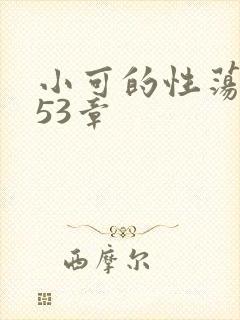 小可的性荡
53章
西摩尔